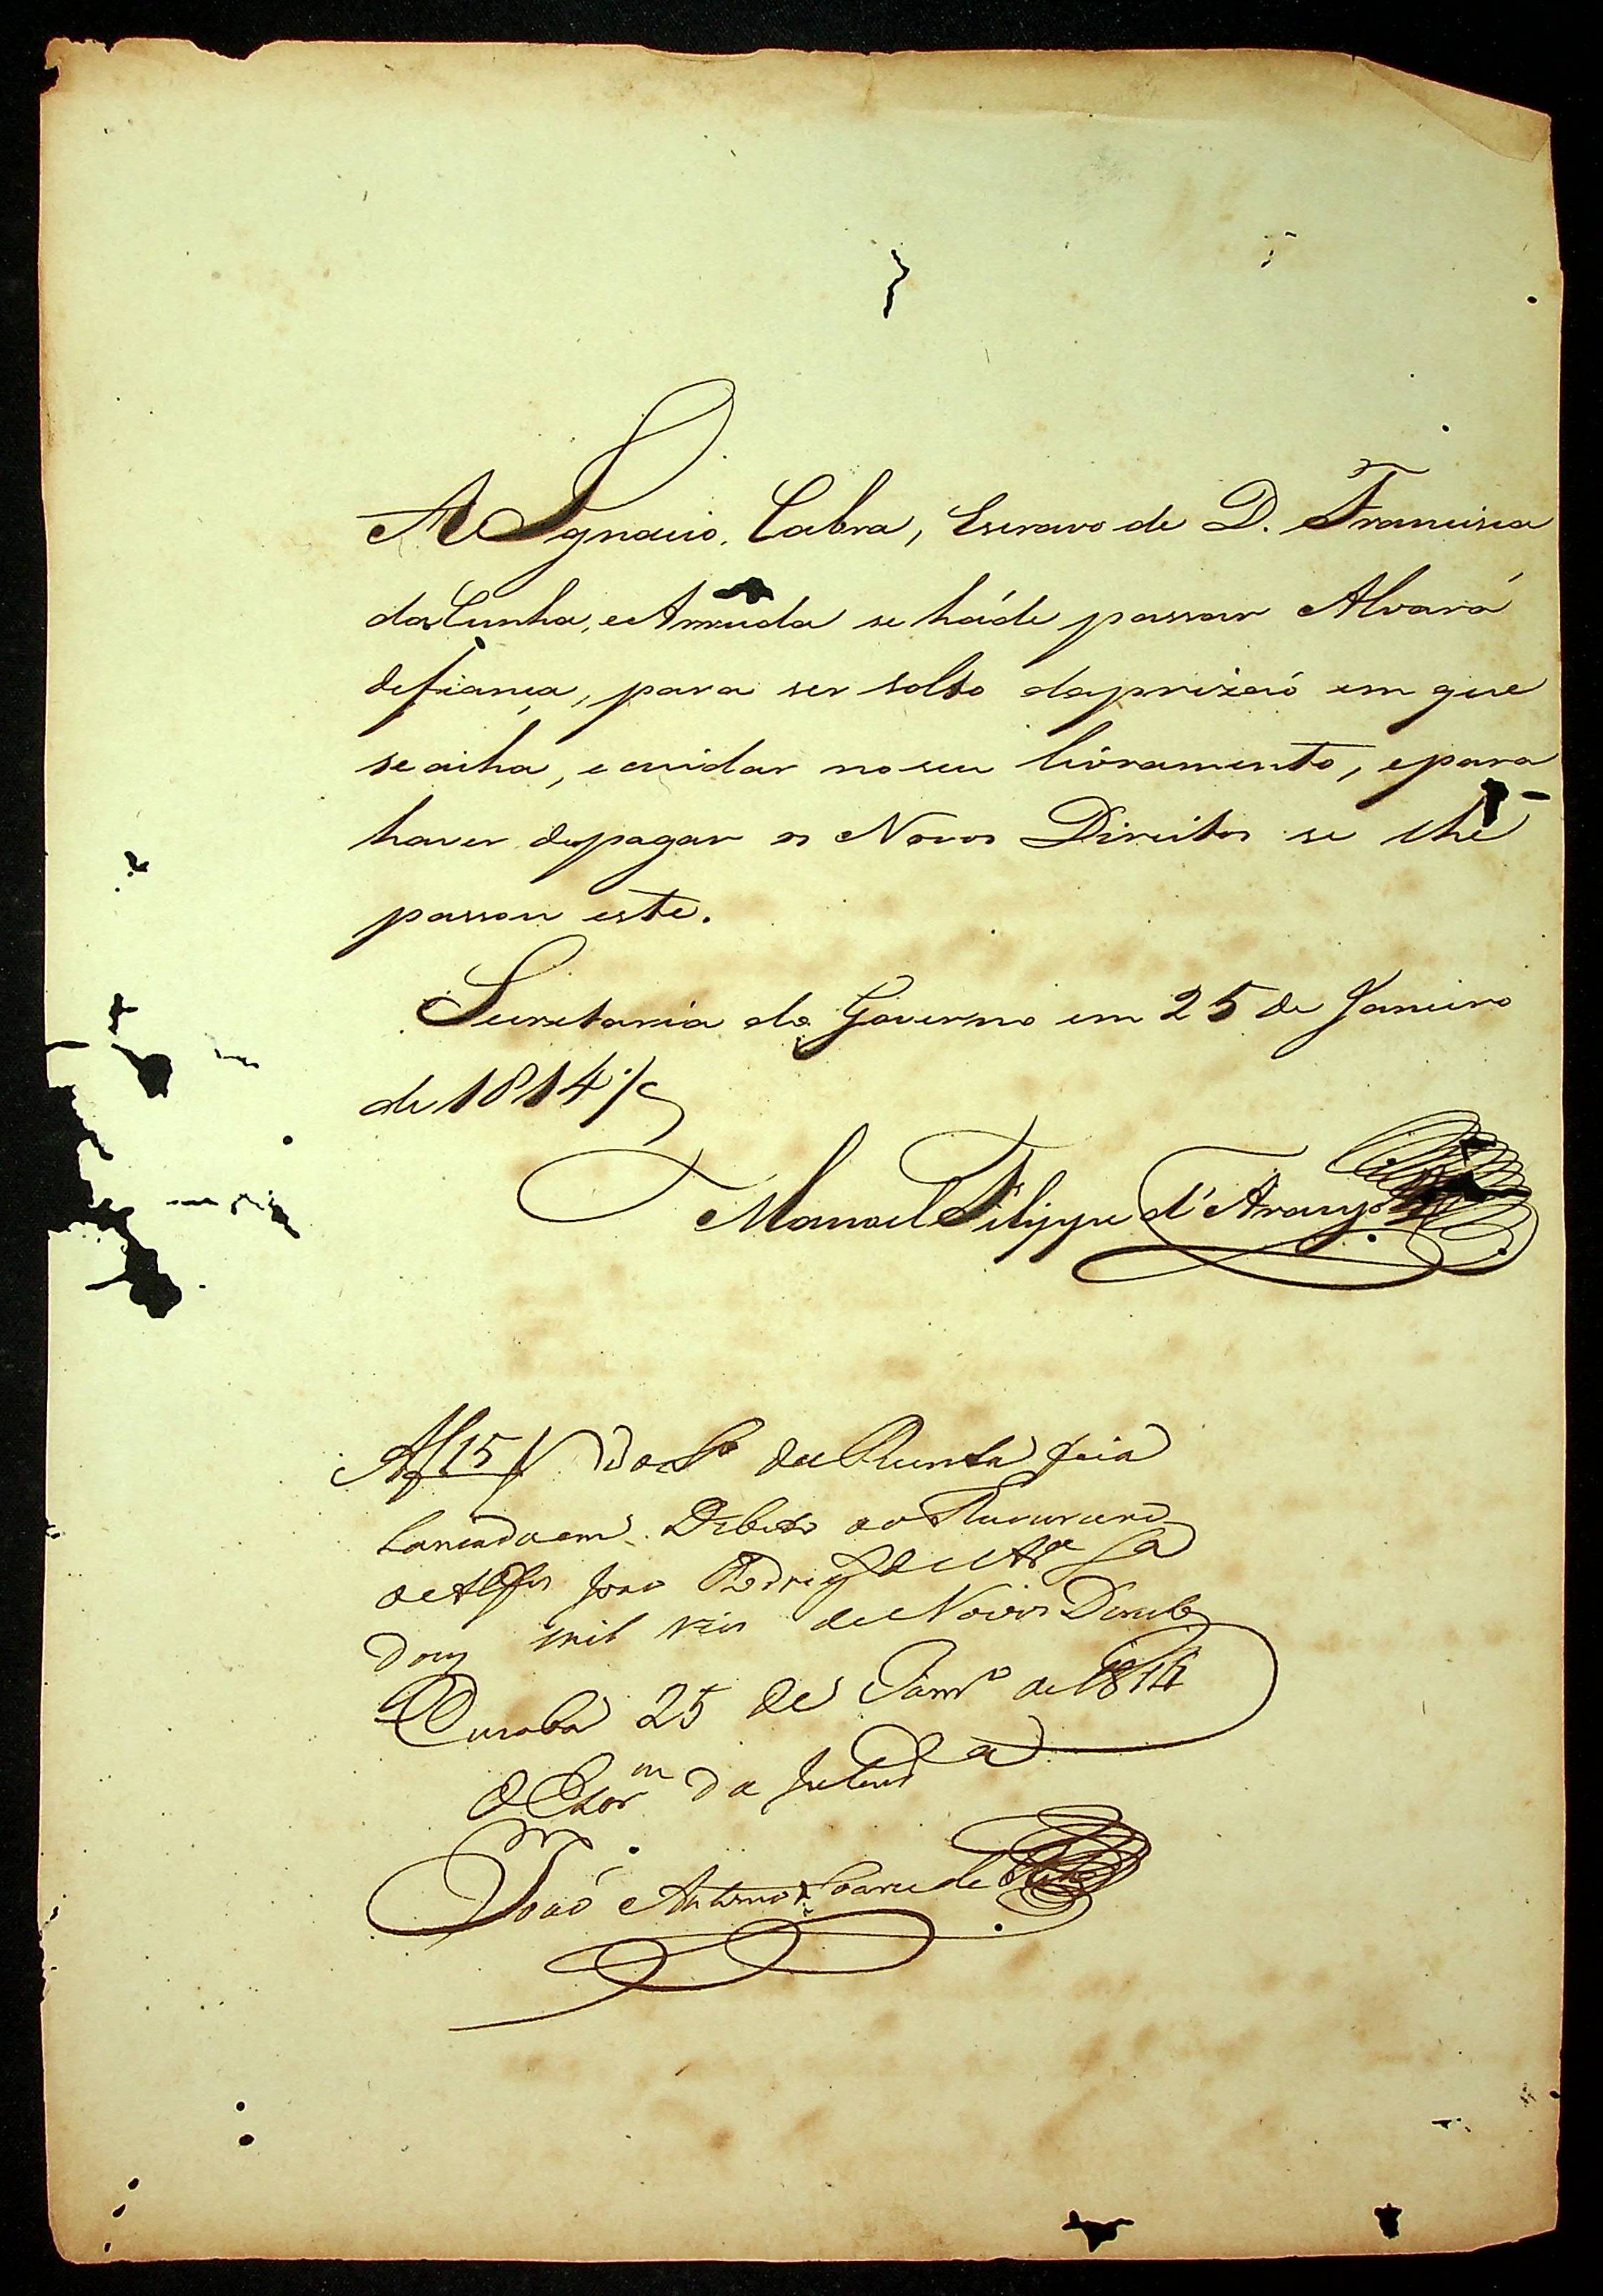 A Ignacio, Cabra, Escravo de D. Francisca
da Cunha, e Arruda se háde passar Alvará
de fiança, para ser solto da prizaõ em que
se acha, e cuidar no seu livramento, e para
haver de pagar os Novos Direitos se lhe
passou este.
Secretaria do Governo em 25 de Janeiro
de 1814
Manoel Filippe d'Araujo
Af 15 do Lº de Receita fica
lançado em Debito ao
João Rodrigs de
Dous mil reis de Novos Direitos
Cuiabá 25 de Janrº de 1814
O Escrm da
João Antonio Soares de